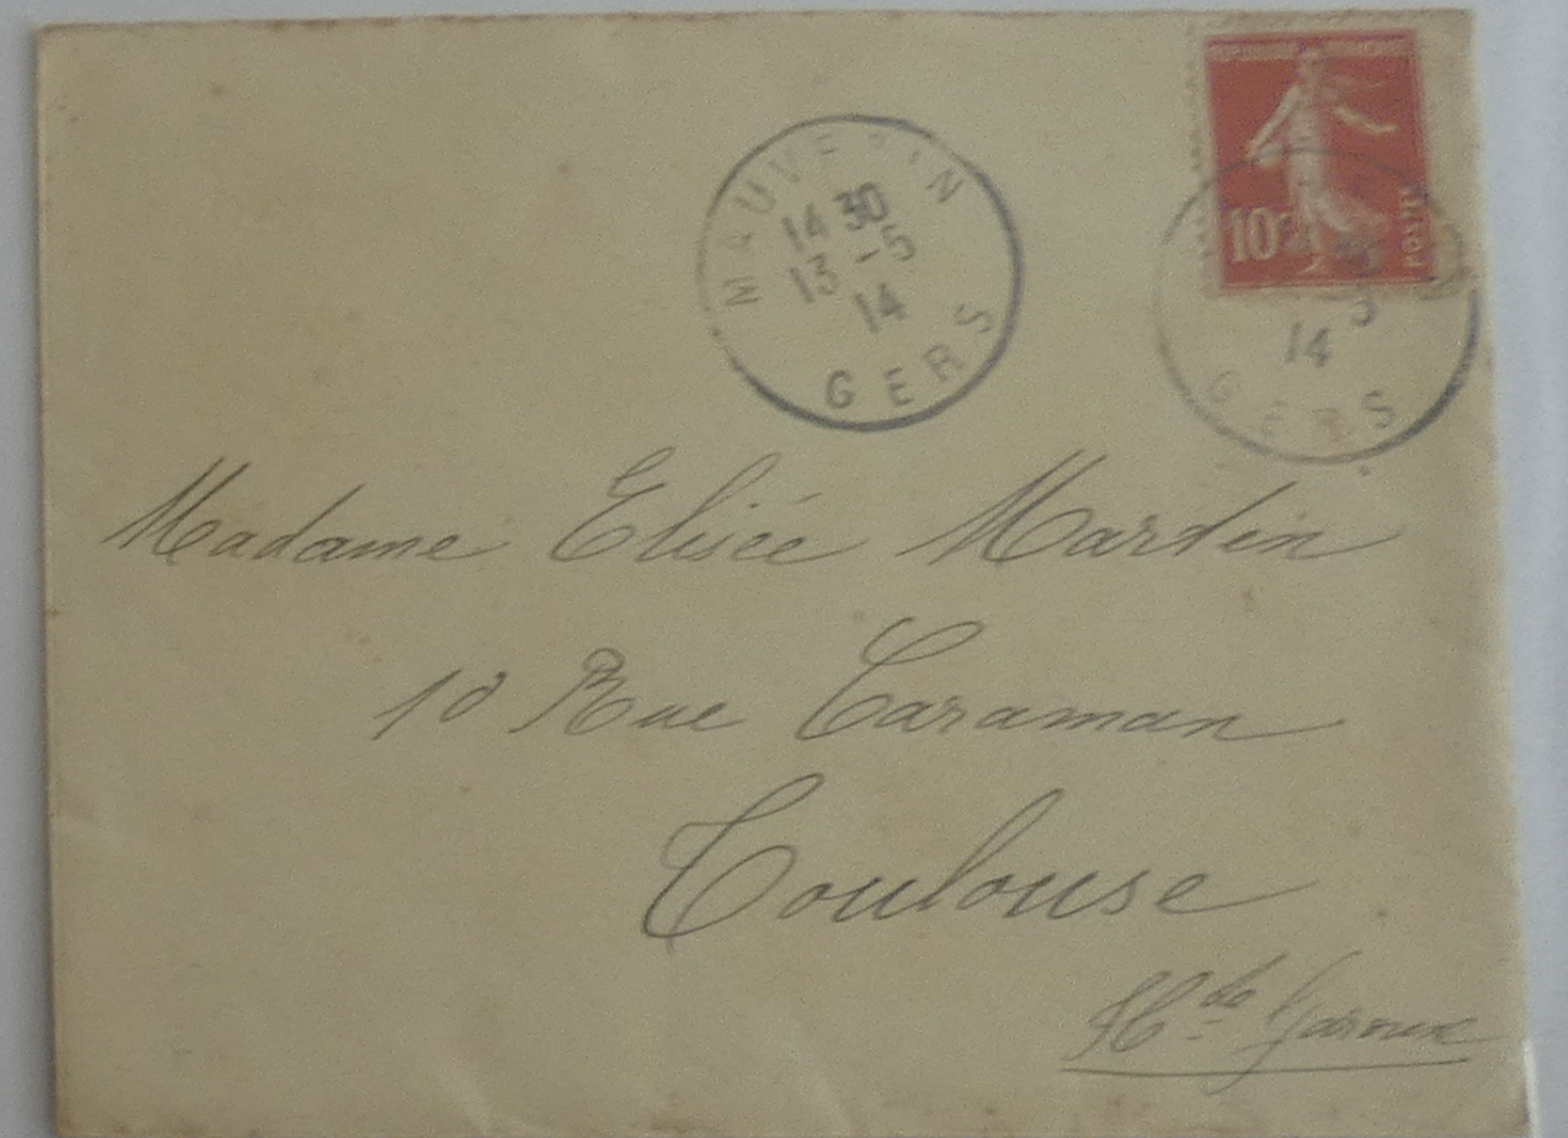 MAUVEZIN
14 30
13 -5
14
GERS
10c
POSTES
5
14
GERS
Madame Elisée Martin
10 Rue Caraman
Toulouse
Hte Garonne